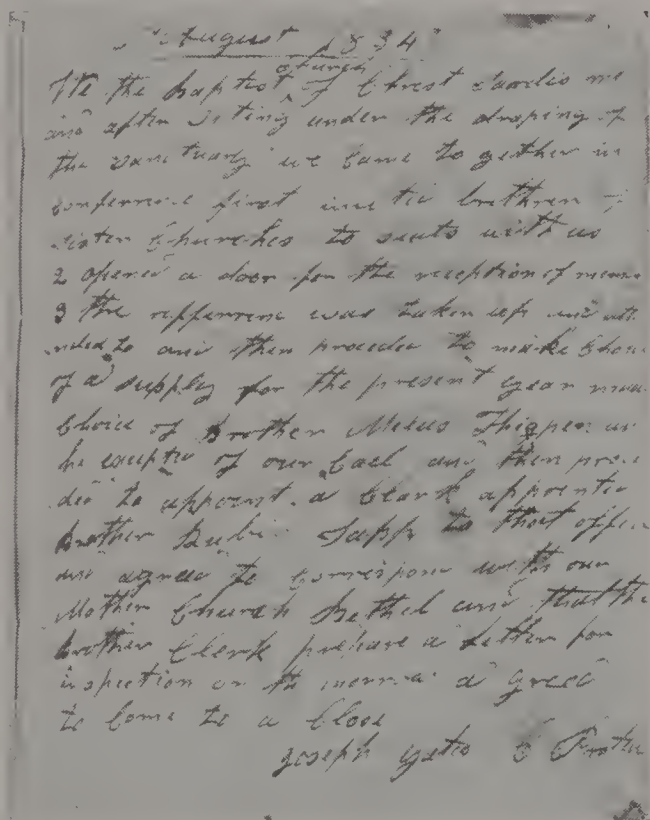 August 1834
We the baptist church of Christ
and after siting under the droping of
the Sanctuary we Came to gether in
conference first brethren
Sister Churches to seats with us
2 opened a door for the reception of
3 the refferenc was taken up and
to and then proceded to make
of a supply for the present year
Choice of Brother Thigpen
he excepted of our Call and then
to appoint a Clark appointed
brother Sapp to that
and agreed to correspond with our
Mother Church Bethel and that the
brother Clerk prepare a Letter for
inspection on the a greed
to Come to a Close
Joseph